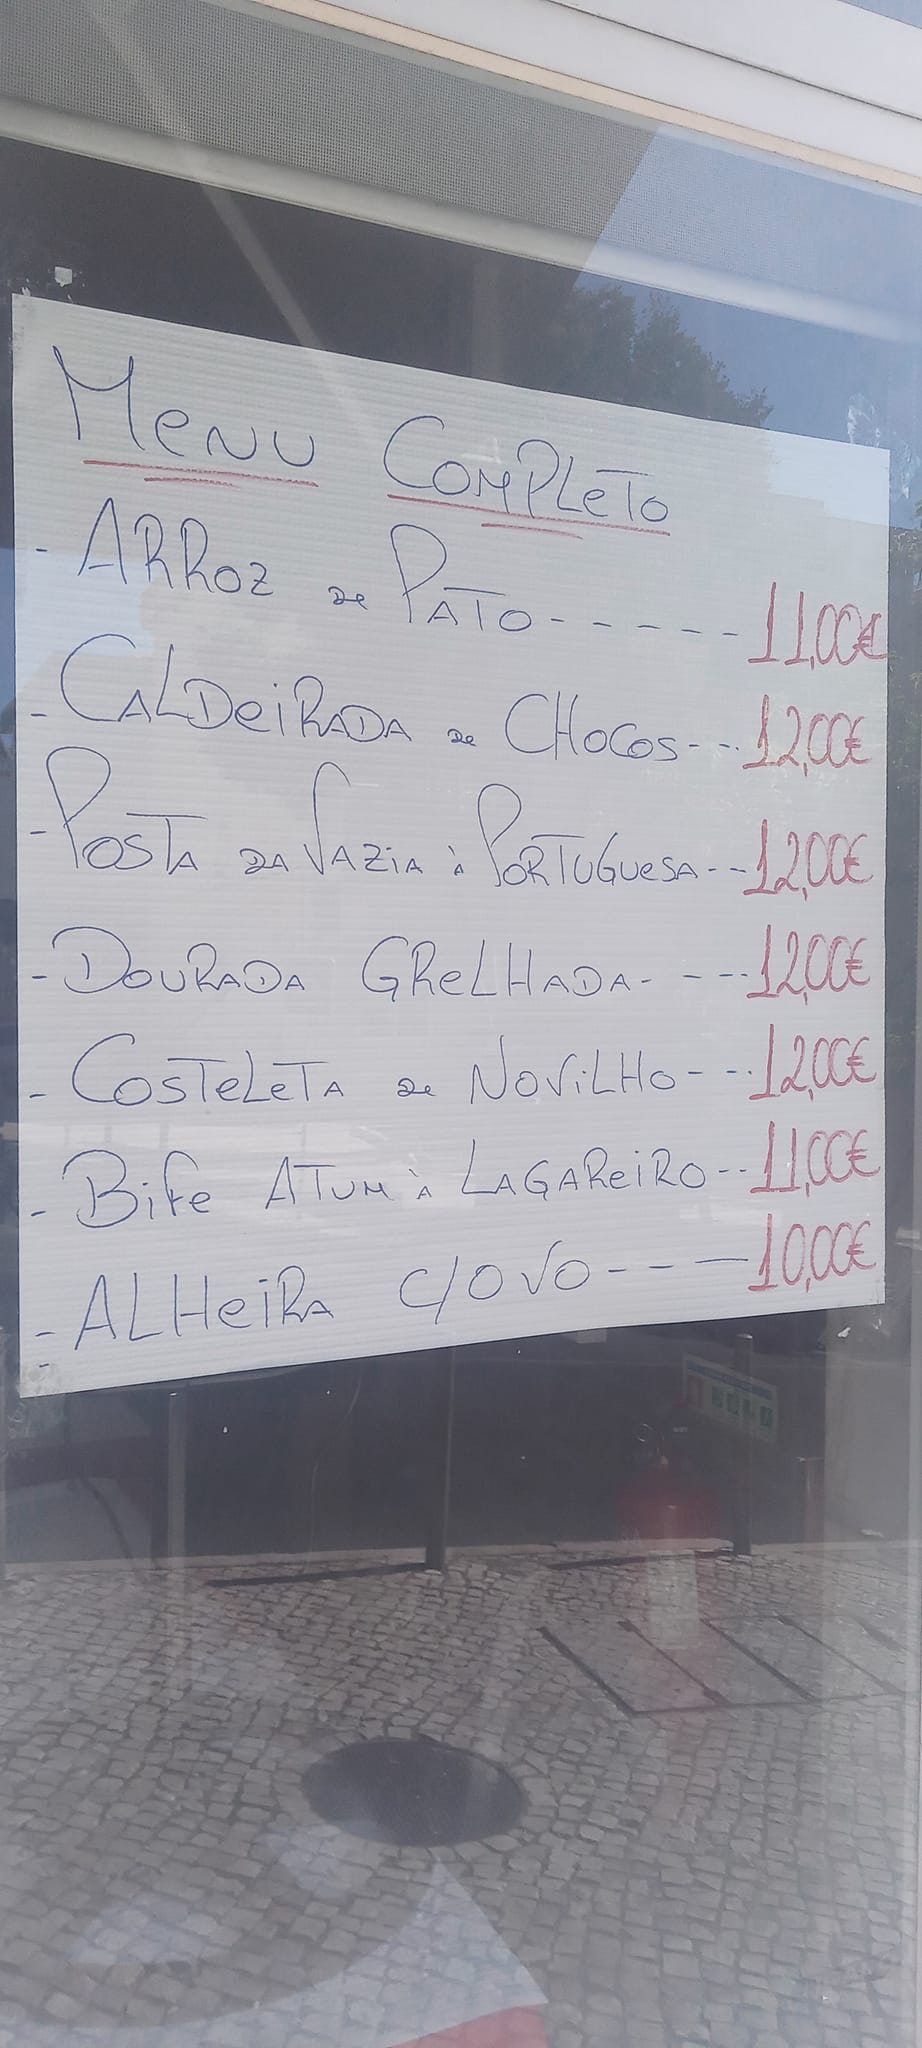 Menu Completo
- Arroz de Pato ------ 11,00€
- Caldeirada de Chocos --- 12,00€
- Posta da Vazia à Portuguesa -- 12,00€
- Dourada Grelhada - --- 12,00€
- Costeleta de Novilho --- 12,00€
- Bife Atum à Lagareiro -- 11,00€
- Alheira c/ovo ---- 10,00€